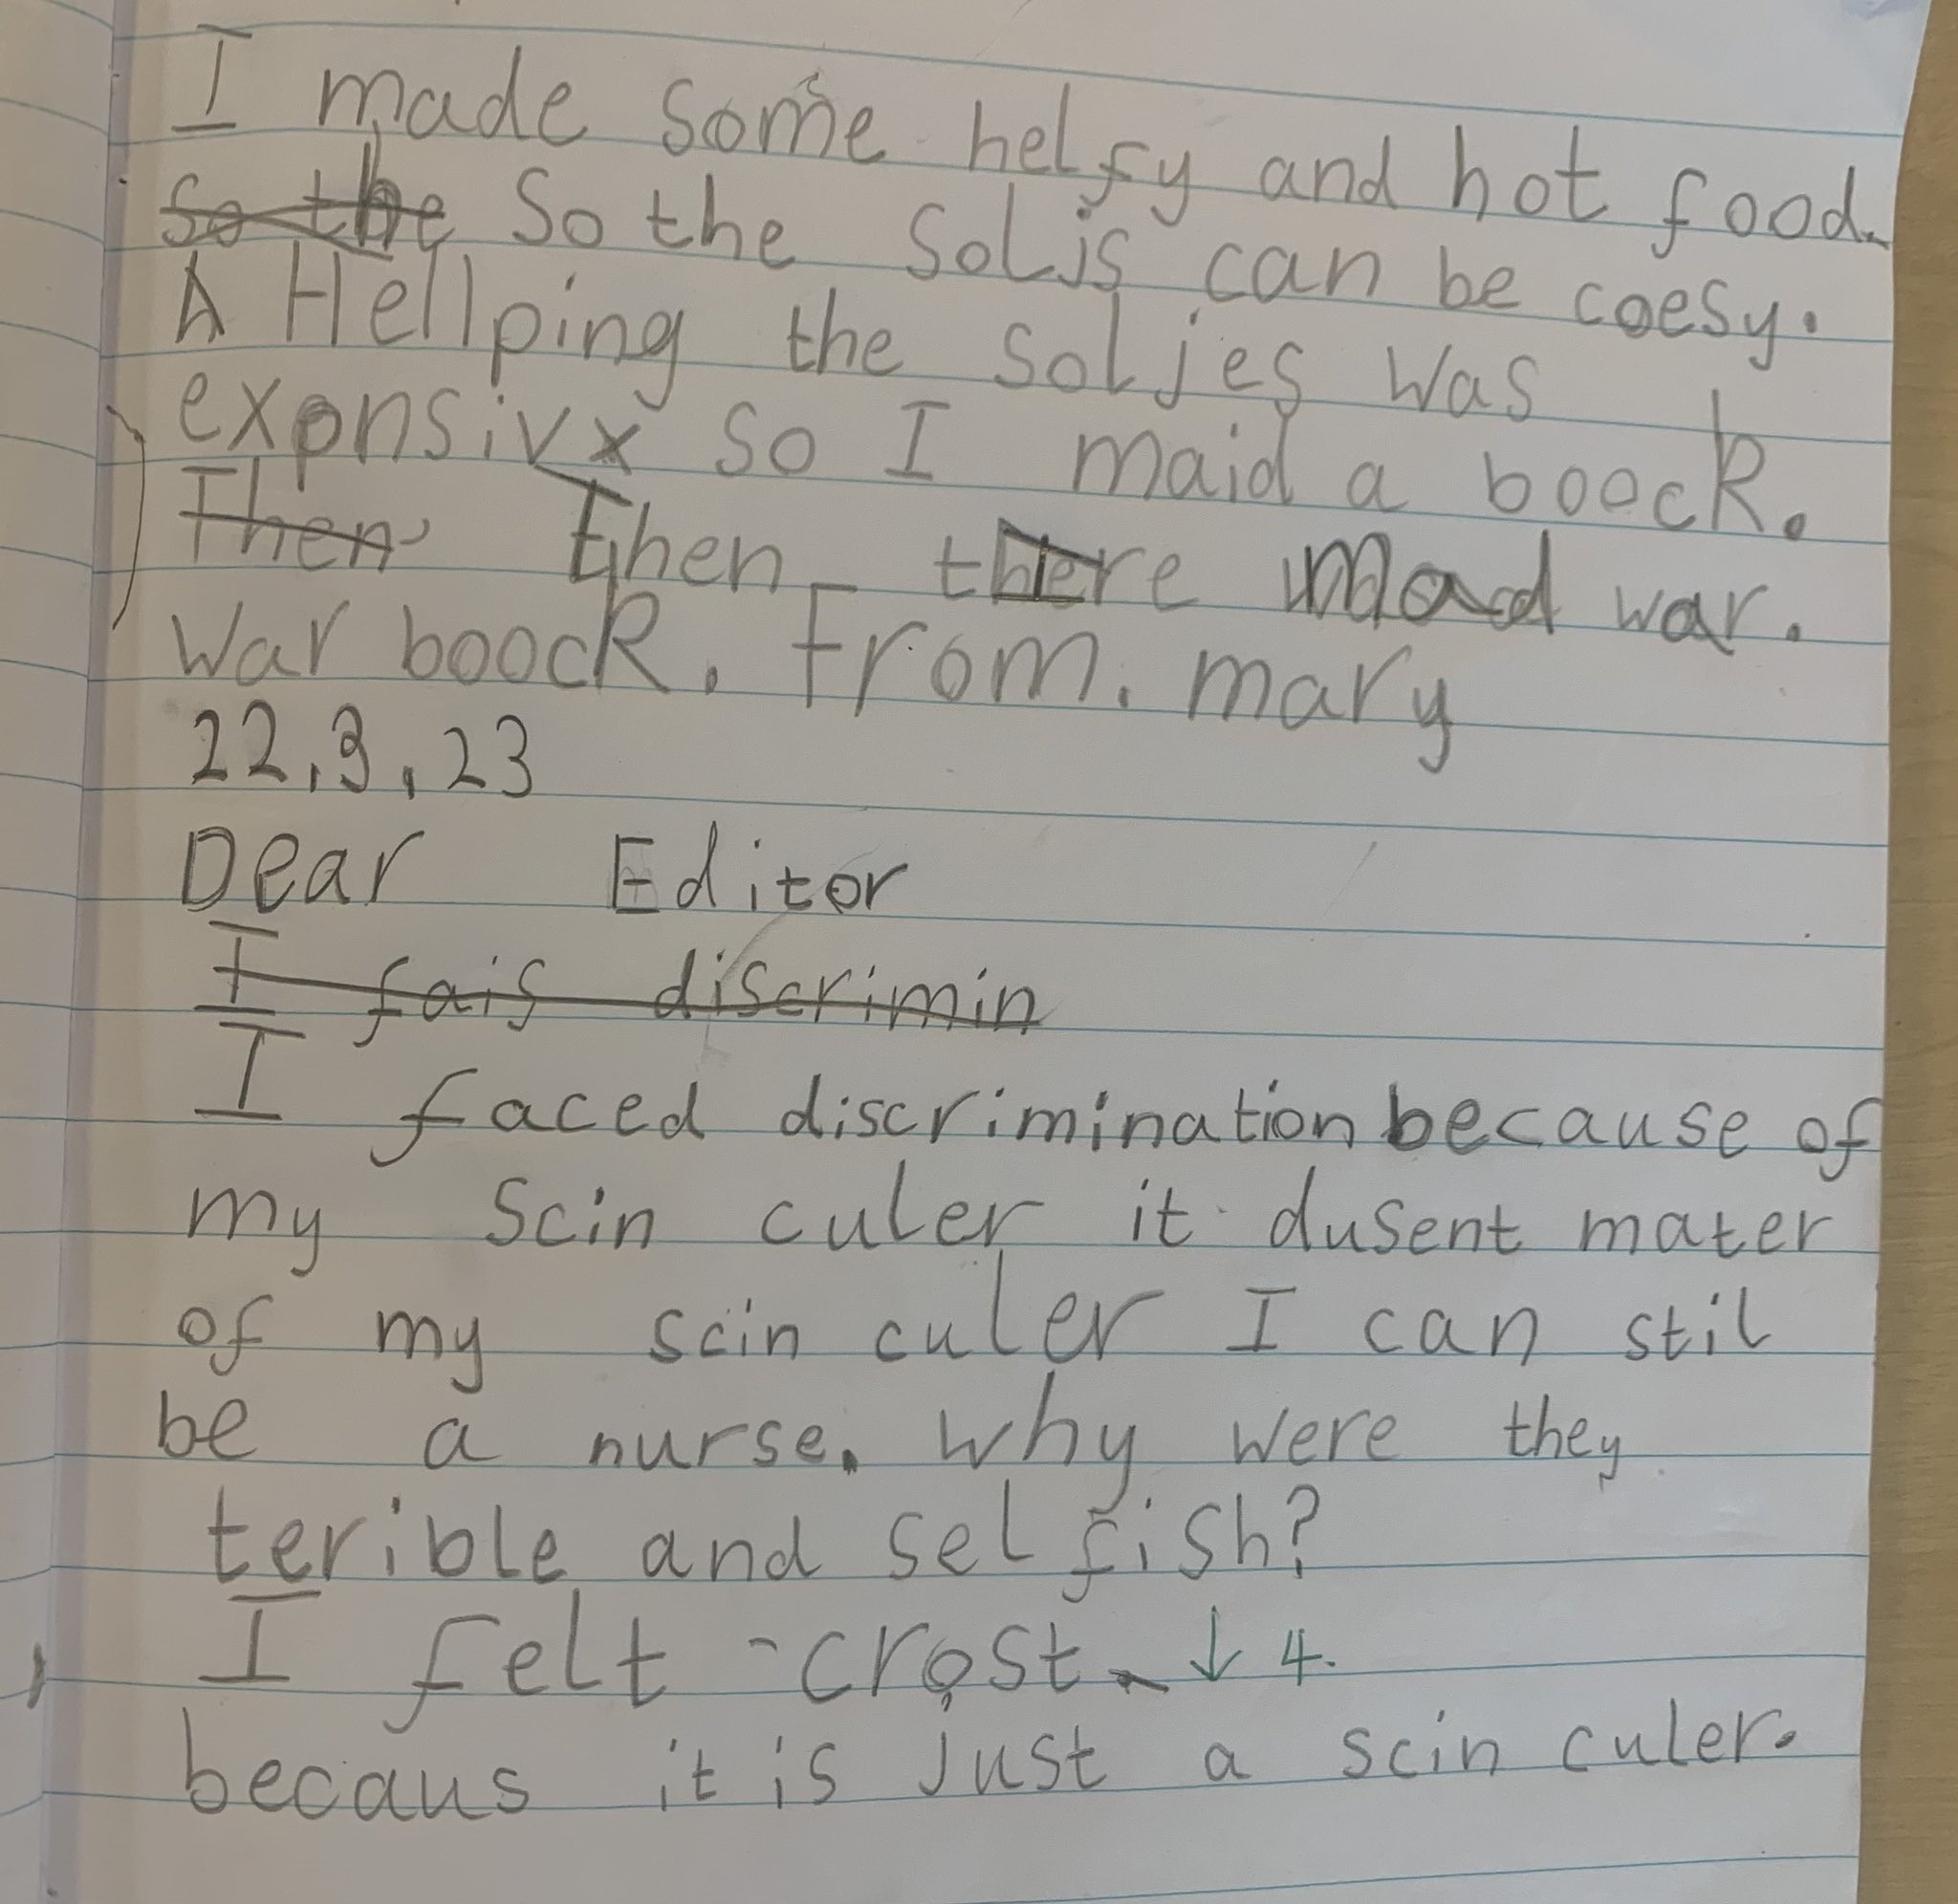 I made some helfy and hot food.
so the So the soljs can be coesy.
A Hellping the soljes was
exponsiv so I maid a boock.
Then Then there mad war.
War boock. From. mary
22.3.23
Dear Editor
I fais discrimin
I faced discrimination because of
my scin culer it dusent mater
of my scin culer I can stil
be a nurse. why were they
terible and selfish?
I felt crost. ↓ 4.
becaus it is Just a scin culer.